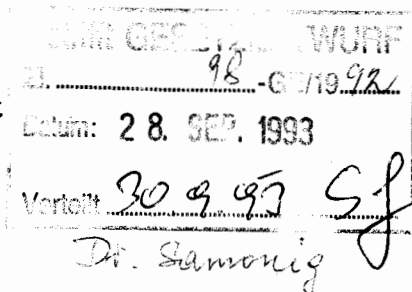 GESETZENTWURF
Zl. 98 -GE/19 92
Datum: 28. SEP. 1993
Verteilt 30. 9. 93
Dr. Samonig